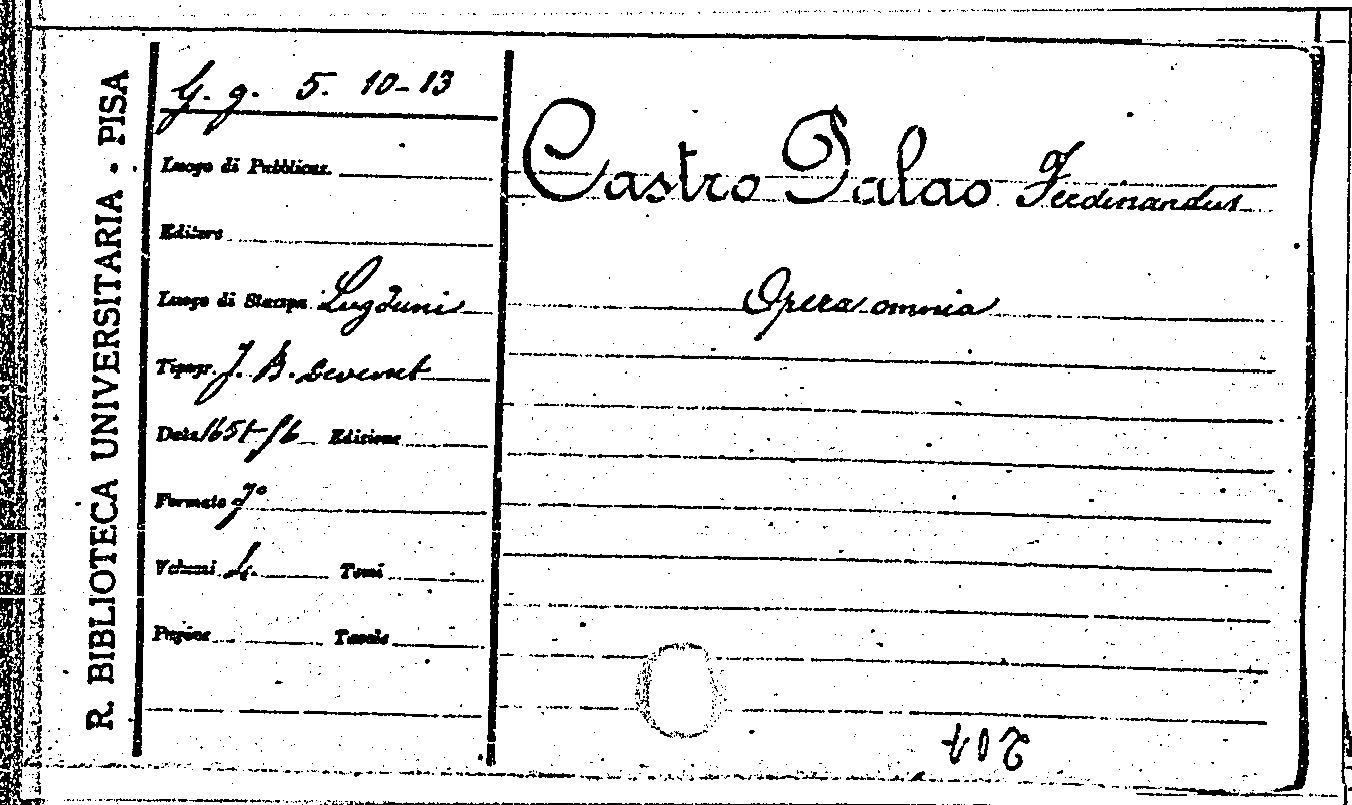 R. BIBLIOTECA UNIVERSITARIA - PISA
G. g. 5. 10-13
Luogo di Pubblicaz.
Editore
Luogo di Stampa Lugduni
Tipogr. J. B. Devenet
Data Edizione
Formato
Volumi 4. Tomi
Pagine Tavole
Castro Palao Ferdinandus
Opera omnia